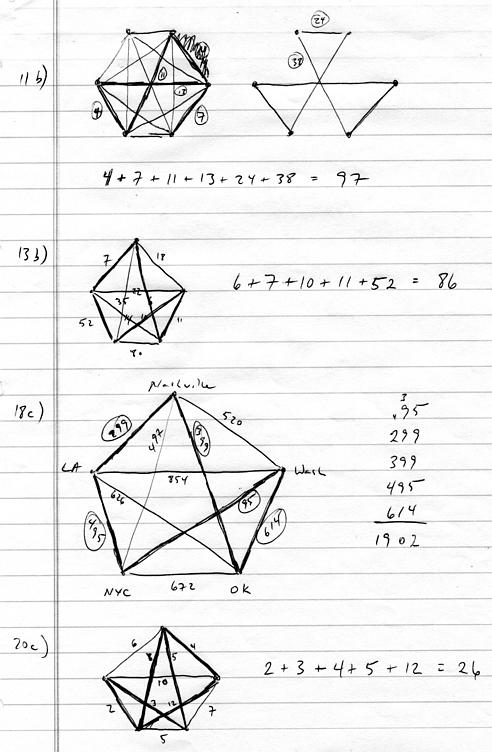 11b)
24
38
11
13
4
7
4 + 7 + 11 + 13 + 24 + 38 = 97
13b)
7
18
35
22
52
11
80
6 + 7 + 10 + 11 + 52 = 86
18c)
Nashville
299
497
399
520
LA
854
Wash
626
95
495
614
NYC
672
OK
3
95
299
399
495
614
1902
20c)
6
8
5
4
10
2
3
12
7
5
2 + 3 + 4 + 5 + 12 = 26